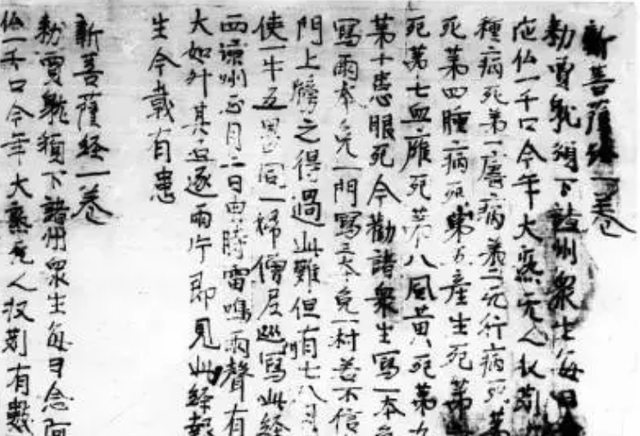 新菩薩經一卷
勑賈躭頒下諸州衆生每日念
疪仏一千口今年大熟无人收刈
種病死第一瘧病第二天行病死
死第四腫病死第五產生死第
死第七血癰死第八風黄死第九
第十患眼死今勸諸衆生寫一本免
寫兩本免一門寫三本免一村若不信
門上牓之得過此難但有七八
使一牛五男同一婦僧尼巡門寫此經
西涼州正月二日中時雷鳴雨聲有
大如升其石遂兩片即見此經報
生今載有患
新菩薩經一卷
勑賈躭頒下諸州衆生每日念阿
仏一千口今年大熟无人收刈有數